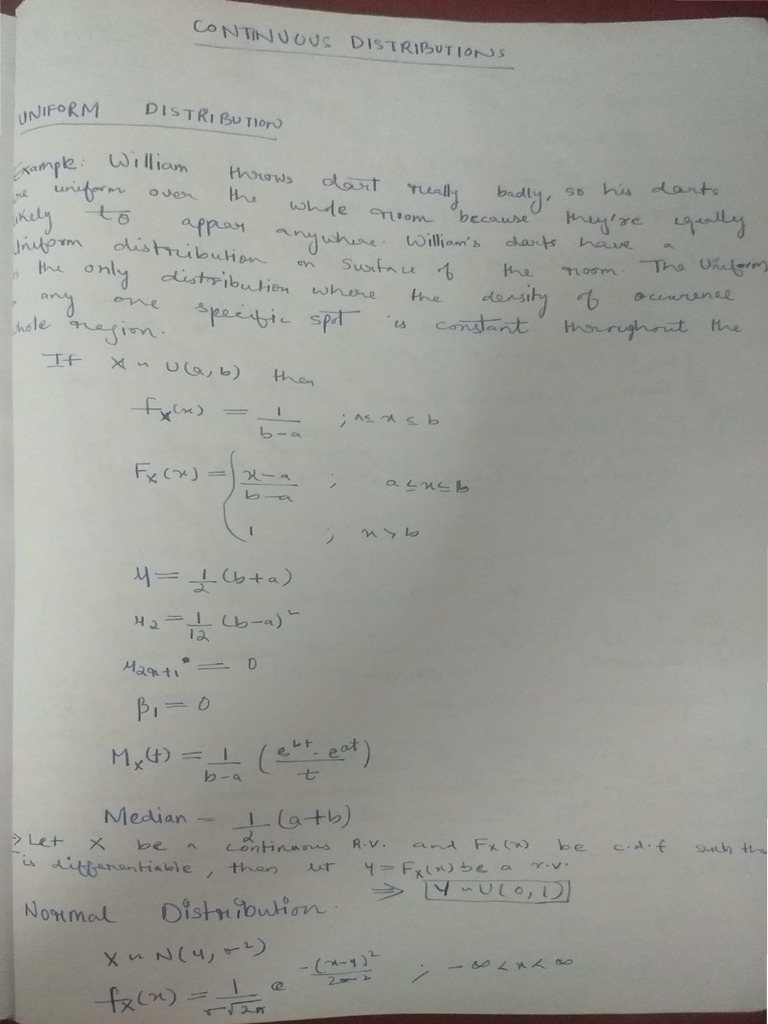 CONTINUOUS DISTRIBUTIONS
UNIFORM DISTRIBUTION
xample: William throws dart really badly, so his darts
re uniform over the whole room because they're equally
ikely to appear anywhere. William's darts have a
Uniform distribution on surface of the room. The Uniform
the only distribution where the density of occurence
any one specific spot is constant throughout the
hole region.
If X ~ U(a, b) then
fx(x) = 1/(b-a) ; a≤ x ≤ b
Fx(x) = { (x-a)/(b-a) ; a ≤ x ≤ b
1 ; x > b
μ = 1/2 (b+a)
μ2 = 1/12 (b-a)²
μ2r+1 = 0
β1 = 0
Mx(t) = 1/(b-a) ((e^bt - e^at)/t)
Median - 1/2 (a+b)
> Let X be a continuous R.V. and Fx(x) be c.d.f such tha
is differentiable, then let Y = Fx(x) be a r.v.
⇒ Y ~ U(0, 1)
Normal Distribution.
X ~ N(μ, σ²)
fx(x) = 1/(σ√2π) e^(-(x-μ)²/2σ²) ; -∞ < x < ∞